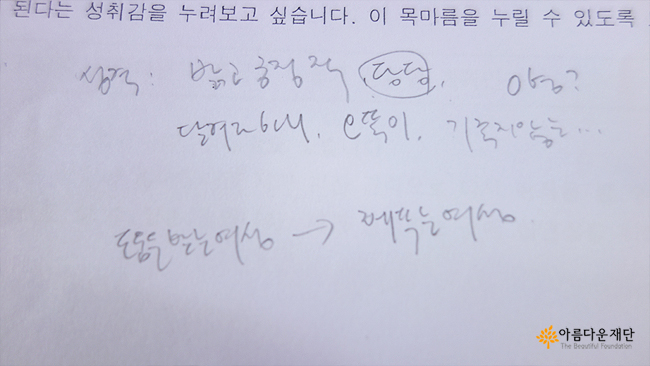 된다는 성취감을 누려보고 싶습니다. 이 목마름을 누릴 수 있도록
성격: 밝고 긍정적 당당, 야영?
달려라하니, 오뚝이, 기죽지않는...
도움을 받는 여성 → 제작는 여성
아름다운재단
The Beautiful Foundation